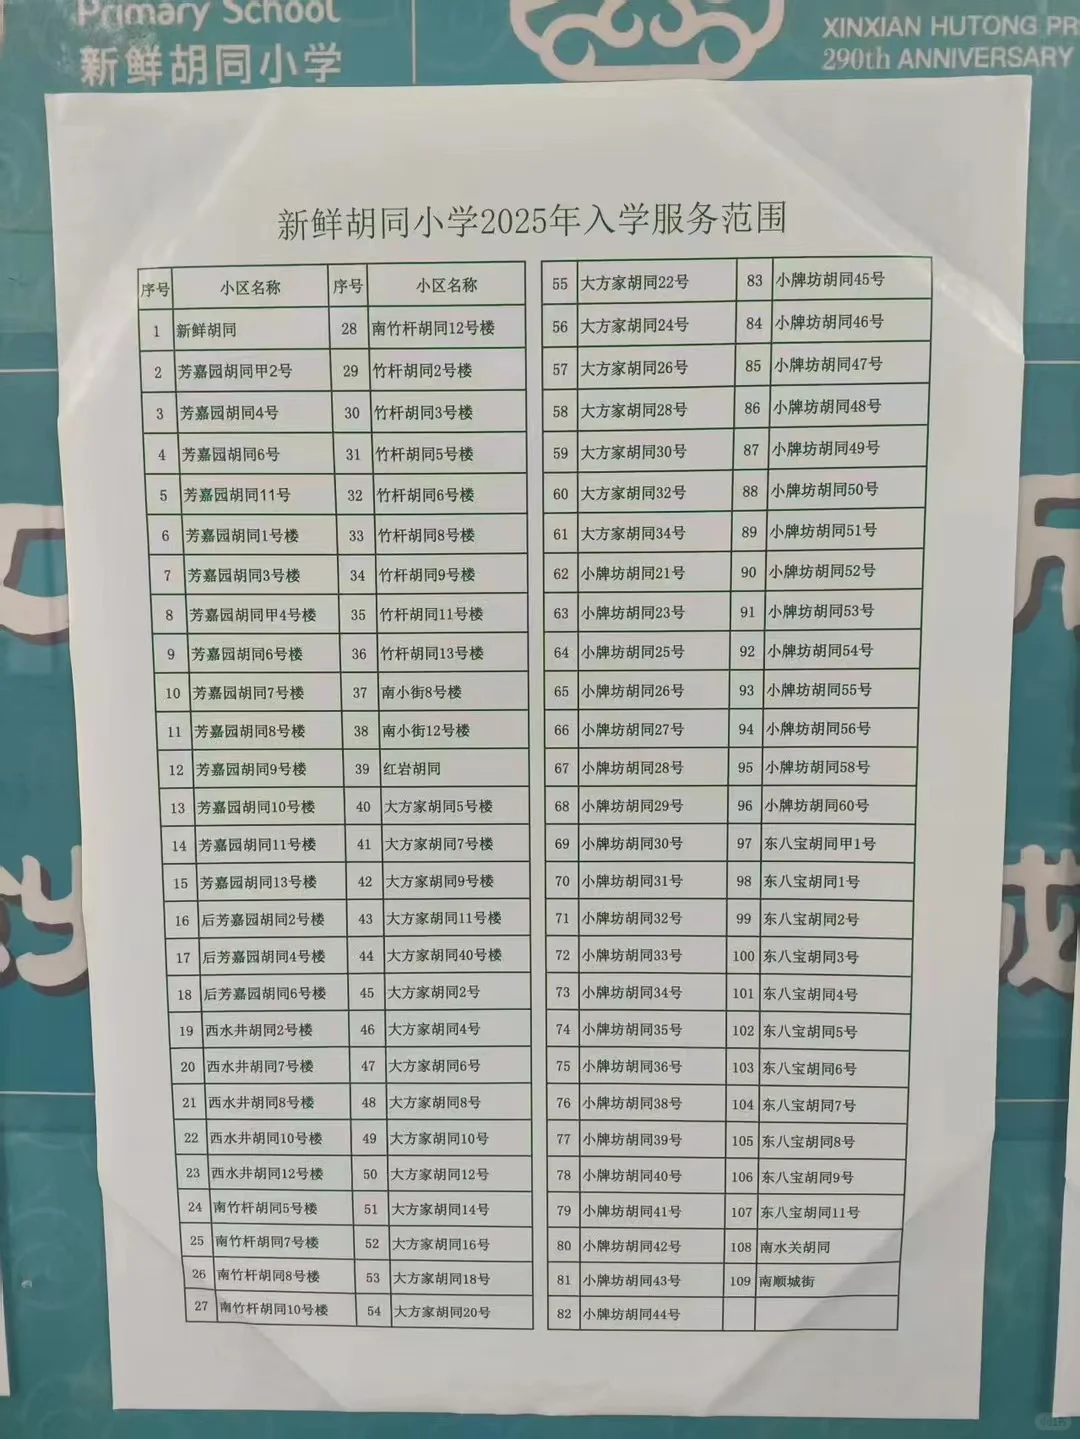 Primary School
新鲜胡同小学
XINXIAN HUTONG PR
290th ANNIVERSARY
新鲜胡同小学2025年入学服务范围
序号 小区名称 序号 小区名称 55 大方家胡同22号 83 小牌坊胡同45号
1 新鲜胡同 28 南竹杆胡同12号楼 56 大方家胡同24号 84 小牌坊胡同46号
2 芳嘉园胡同甲2号 29 竹杆胡同2号楼 57 大方家胡同26号 85 小牌坊胡同47号
3 芳嘉园胡同4号 30 竹杆胡同3号楼 58 大方家胡同28号 86 小牌坊胡同48号
4 芳嘉园胡同6号 31 竹杆胡同5号楼 59 大方家胡同30号 87 小牌坊胡同49号
5 芳嘉园胡同11号 32 竹杆胡同6号楼 60 大方家胡同32号 88 小牌坊胡同50号
6 芳嘉园胡同1号楼 33 竹杆胡同8号楼 61 大方家胡同34号 89 小牌坊胡同51号
7 芳嘉园胡同3号楼 34 竹杆胡同9号楼 62 小牌坊胡同21号 90 小牌坊胡同52号
8 芳嘉园胡同甲4号楼 35 竹杆胡同11号楼 63 小牌坊胡同23号 91 小牌坊胡同53号
9 芳嘉园胡同6号楼 36 竹杆胡同13号楼 64 小牌坊胡同25号 92 小牌坊胡同54号
10 芳嘉园胡同7号楼 37 南小街8号楼 65 小牌坊胡同26号 93 小牌坊胡同55号
11 芳嘉园胡同8号楼 38 南小街12号楼 66 小牌坊胡同27号 94 小牌坊胡同56号
12 芳嘉园胡同9号楼 39 红岩胡同 67 小牌坊胡同28号 95 小牌坊胡同58号
13 芳嘉园胡同10号楼 40 大方家胡同5号楼 68 小牌坊胡同29号 96 小牌坊胡同60号
14 芳嘉园胡同11号楼 41 大方家胡同7号楼 69 小牌坊胡同30号 97 东八宝胡同甲1号
15 芳嘉园胡同13号楼 42 大方家胡同9号楼 70 小牌坊胡同31号 98 东八宝胡同1号
16 后芳嘉园胡同2号楼 43 大方家胡同11号楼 71 小牌坊胡同32号 99 东八宝胡同2号
17 后芳嘉园胡同4号楼 44 大方家胡同40号楼 72 小牌坊胡同33号 100 东八宝胡同3号
18 后芳嘉园胡同6号楼 45 大方家胡同2号 73 小牌坊胡同34号 101 东八宝胡同4号
19 西水井胡同2号楼 46 大方家胡同4号 74 小牌坊胡同35号 102 东八宝胡同5号
20 西水井胡同7号楼 47 大方家胡同6号 75 小牌坊胡同36号 103 东八宝胡同6号
21 西水井胡同8号楼 48 大方家胡同8号 76 小牌坊胡同38号 104 东八宝胡同7号
22 西水井胡同10号楼 49 大方家胡同10号 77 小牌坊胡同39号 105 东八宝胡同8号
23 西水井胡同12号楼 50 大方家胡同12号 78 小牌坊胡同40号 106 东八宝胡同9号
24 南竹杆胡同5号楼 51 大方家胡同14号 79 小牌坊胡同41号 107 东八宝胡同11号
25 南竹杆胡同7号楼 52 大方家胡同16号 80 小牌坊胡同42号 108 南水关胡同
26 南竹杆胡同8号楼 53 大方家胡同18号 81 小牌坊胡同43号 109 南顺城街
27 南竹杆胡同10号楼 54 大方家胡同20号 82 小牌坊胡同44号